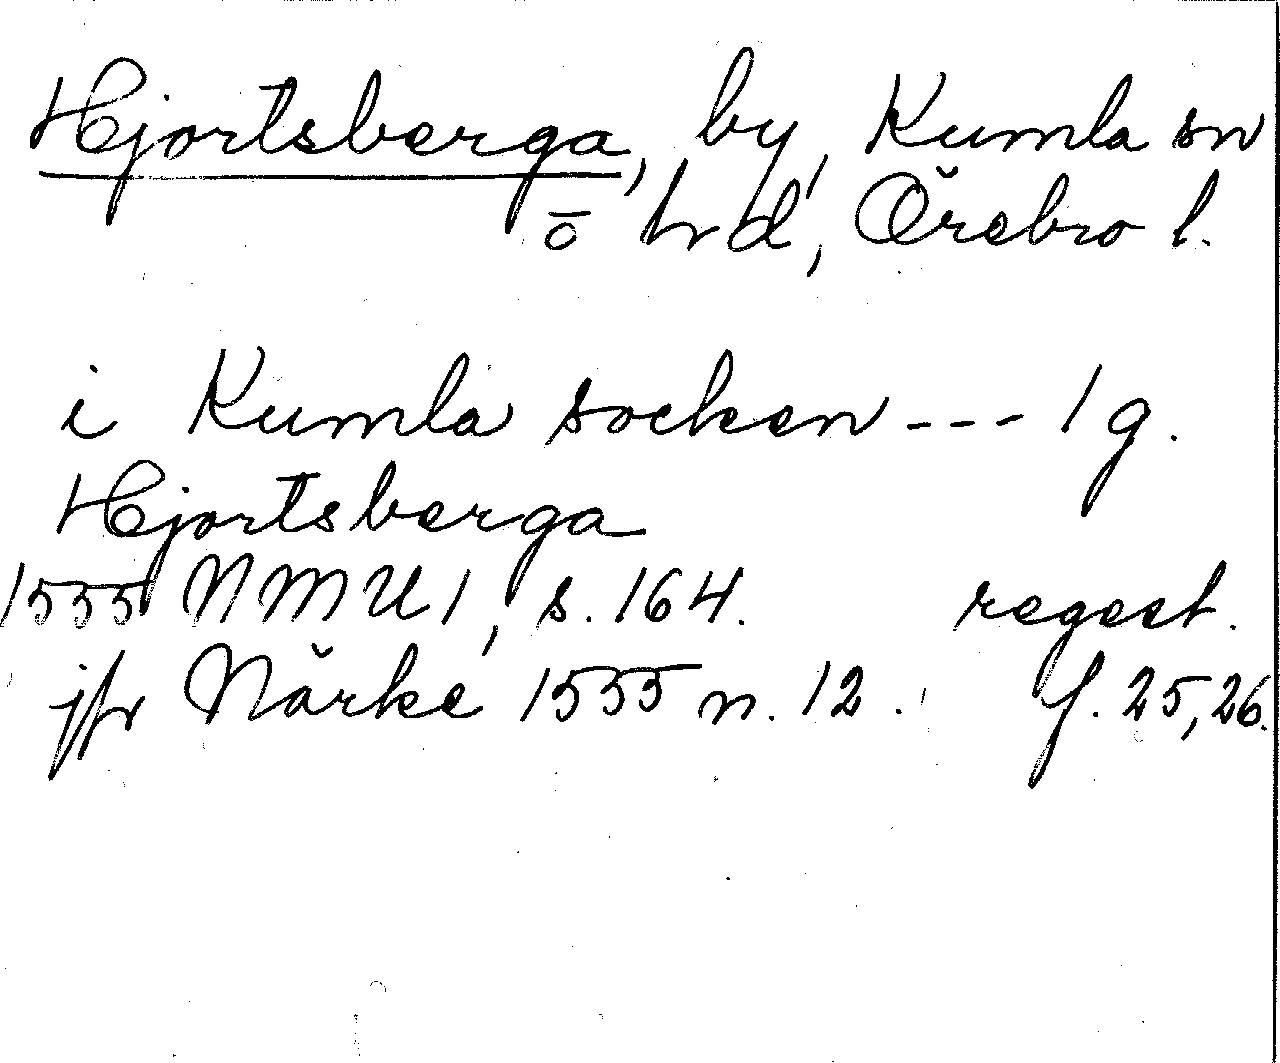 Hjortsberga, by, Kumla sn
ō hd, Örebro l.
i Kumla socken --- 1 g.
Hjortsberga
1555 NMU 1, s. 164. regest.
jfr Närke 1555 n. 12. f. 25, 26.